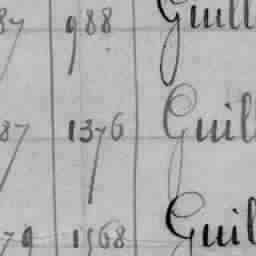 87 988 Guill
87 1376 Guill
79 1568 Guil